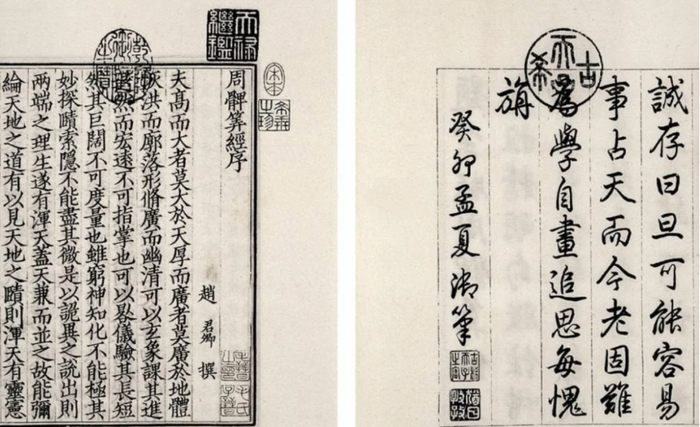 古希天子
誠存曰旦可能容易
事占天而今老固難
為學自畫追思每愧
旃
癸卯孟夏御筆
天祿繼鑑
乾隆御覽之寶
宋本
希世之珍
周髀筭經序
趙君卿撰
夫高而大者莫大於天厚而廣者莫廣於地體
恢洪而廓落形脩廣而幽清可以玄象課其進
退然而宏遠不可指掌也可以晷儀驗其長短
然其巨闊不可度量也雖窮神知化不能極其
妙探賾索隱不能盡其微是以詭異之說出則
兩端之理生遂有渾天蓋天兼而並之故能彌
綸天地之道有以見天地之賾則渾天有靈憲